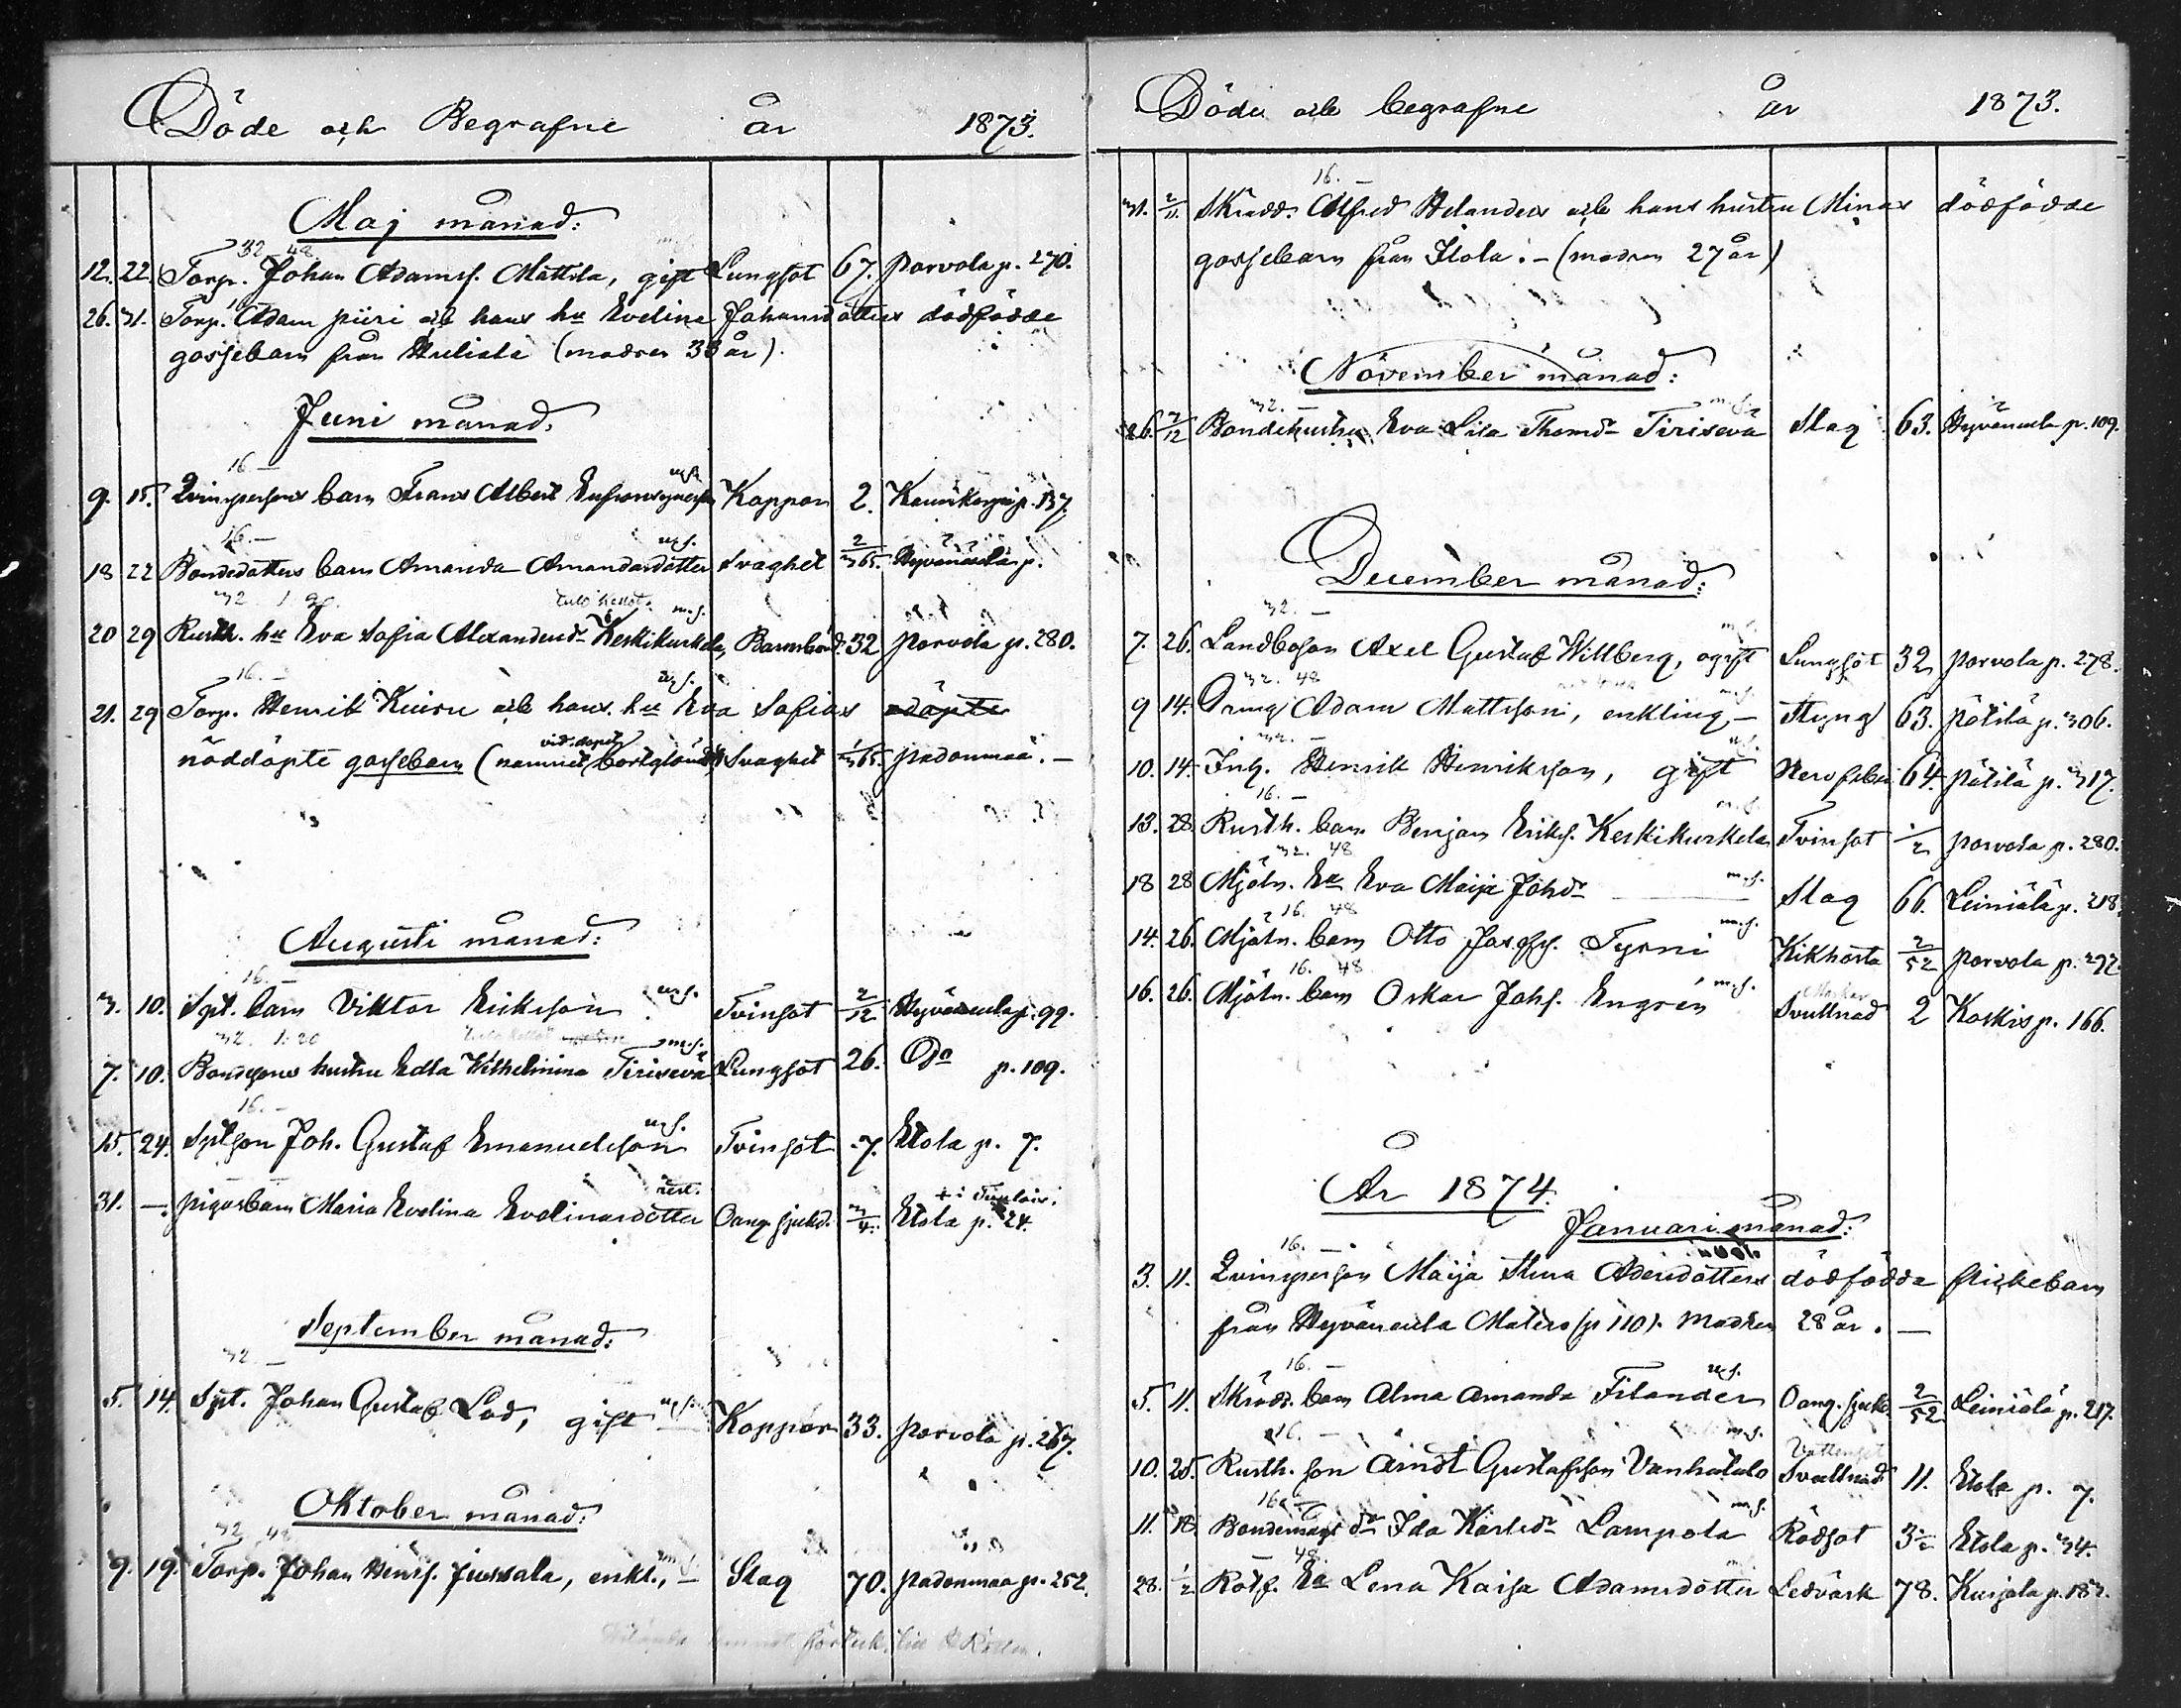 Döde och Begrafne år 1873.
Maj månad:
32 48
12. 22. Torp. Johan Adamsf. Mattila, gift Lungsot 67. Parvola p. 270.
26. 31. Torp. Adam Piiri och hans hu Evelina Johansdotters dödfödde
gossebarn från (modren 33 år).
Juni månad.
16 —
9. 15. Qvinspersons barn Frans Albert Koppor 2. p. 137.
16. —
18 22 Bondedotters barn Amanda Amandasdotter Svaghet 2/365. Hyvänäula p.
32
20 29 Rusth. hu Eva Sofia Alexandersdr Keskikurkela, Barnsbörd. 32 Parvola p. 280.
16. —
21. 29 Torp. Henrik och hans hu Eva Sofias odöpte
nöddöpte gossebarn (namnet vid dopet bortglömdt) Svaghet 1/365. Padonmaa. —
Augusti månad:
16. —
3. 10. Spt. barn Viktor Eriksson m.f. Tvinsot 2/12 Hyvänäula p. 99.
32. 1.20
7. 10. Bondesons hustru Edla Wilhelmina Tiriseva m.f. Lungsot 26. Do p. 109.
16. —
15. 24. Sptson Joh. Gustaf Emanuelsson m.f. Tvinsot 7. Etola p. 7.
31. — Pigasbarn Maria Evelina Evelinasdotter Oang. sjukd. 3/4. Etola p. 24.
September månad:
32. —
5. 14. Spt. Johan Gustaf Lod, gift Koppor 33. Parvola p. 267.
Oktober månad:
32 48
9. 19. Torp. Johan Henrf. Jussala, enkl., — Slag 70. Padonmaa p. 252.
Döde och begrafne år 1873.
16. —
31. 2/11. Skrädd. Alfred Helanders och hans hustru Minas dödfödde
gossebarn från Etola. — (modren 27 år)
November månad:
32. —
26. 7/12 Bondehustru Eva Lisa Thomdr Tiriseva m.f. Slag 63. Hyvänäula p. 109.
December månad:
32. —
7. 26. Landboson Axel Gustaf Willberg, ogift Lungsot 32 Parvola p. 278.
32. 48
9 14. Dräng Adam Mattsson, enkling, — Styng 63. Pätilä p. 306.
32. —
10. 14. Inh. Henrik Henriksson, gift Nervfeber 64. Pätilä p. 317.
16. —
13. 28. Rusth. barn Benjam Eriksf. Keskikurkela Tvinsot 1/2 Parvola p. 280.
32. 48
18 28 Mjöln. Ea Eva Maija Johdr m.f. Slag 66. Leiniälä p. 218.
16. 48
14. 26. Mjöln. barn Otto Josefsf. Tyrni m.f. Kikhosta 2/52 Parvola p. 292.
16. 48
16. 26. Mjöln. barn Oskar Johf. Engrén m.f. Svullnad 2 Koskis p. 166.
År 1874.
Januari månad:
16. —
3. 11. Qvinsperson Maija Stina Adersdotters dödfödda flickebarn
från Hyvänäula Matero (p 110). Modren 28 år. —
16. —
5. 11. Skrädd. barn Alma Amanda Filander m.f. Oang. sjukd. 2/52 Leiniälä p. 217.
16. —
10. 25. Rusth. son Arndt Gustafsson Vanhatalo m.f. Svullnad 11. Etola p. 7.
16. —
11. 18. Bondemågs dr Ida Karlsdr Lampola m.f. Rödsot 3 1/2 Etola p. 34.
48.
28. 1/2 Rotf. Ea Lena Kajsa Adamsdotter Ledvärk 78. Kurjala p. 182.